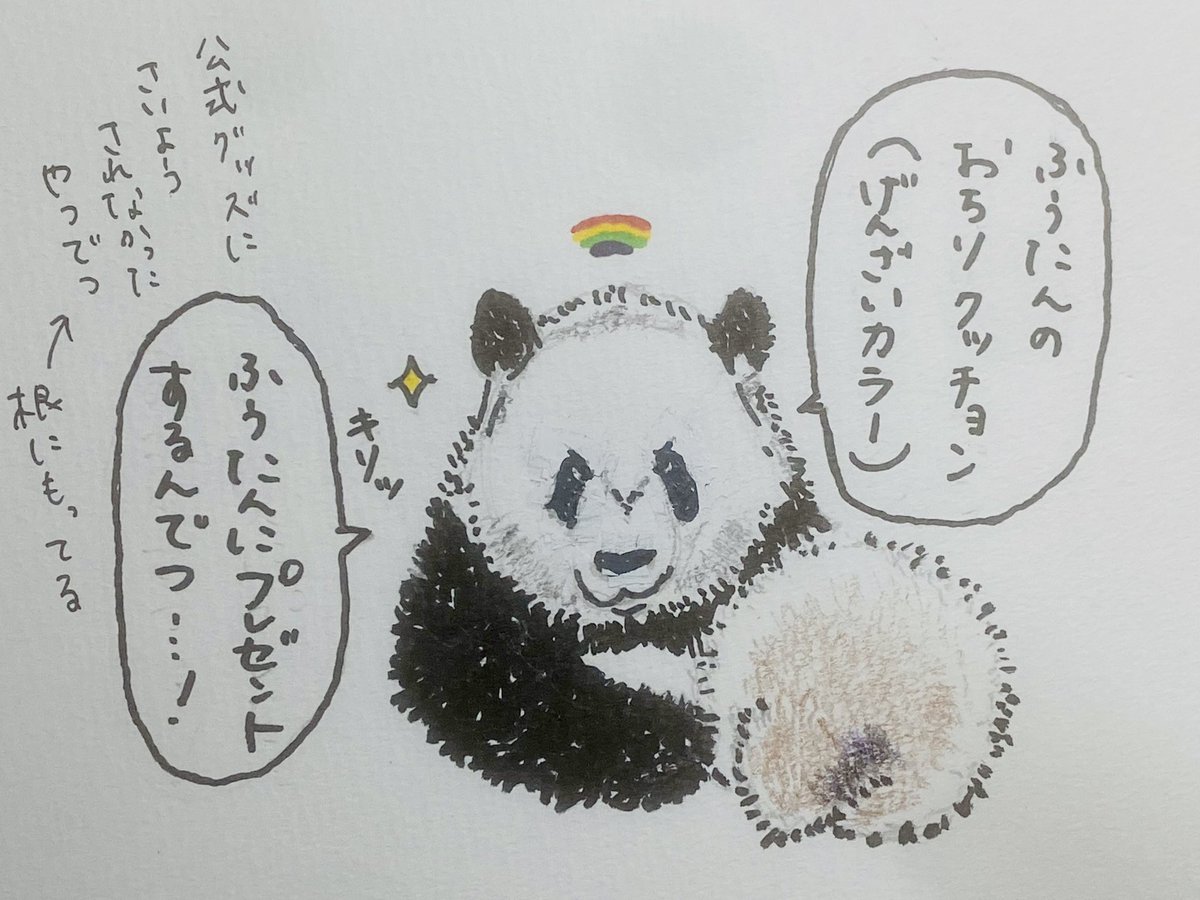 ふうたんの
おちりクッチョン
（げんざいカラー）
キリッ
ふうたんにプレゼント
するんでつ……!
公式グッズに
さいよう
されなかった
やつでつ
↑
根にもってる